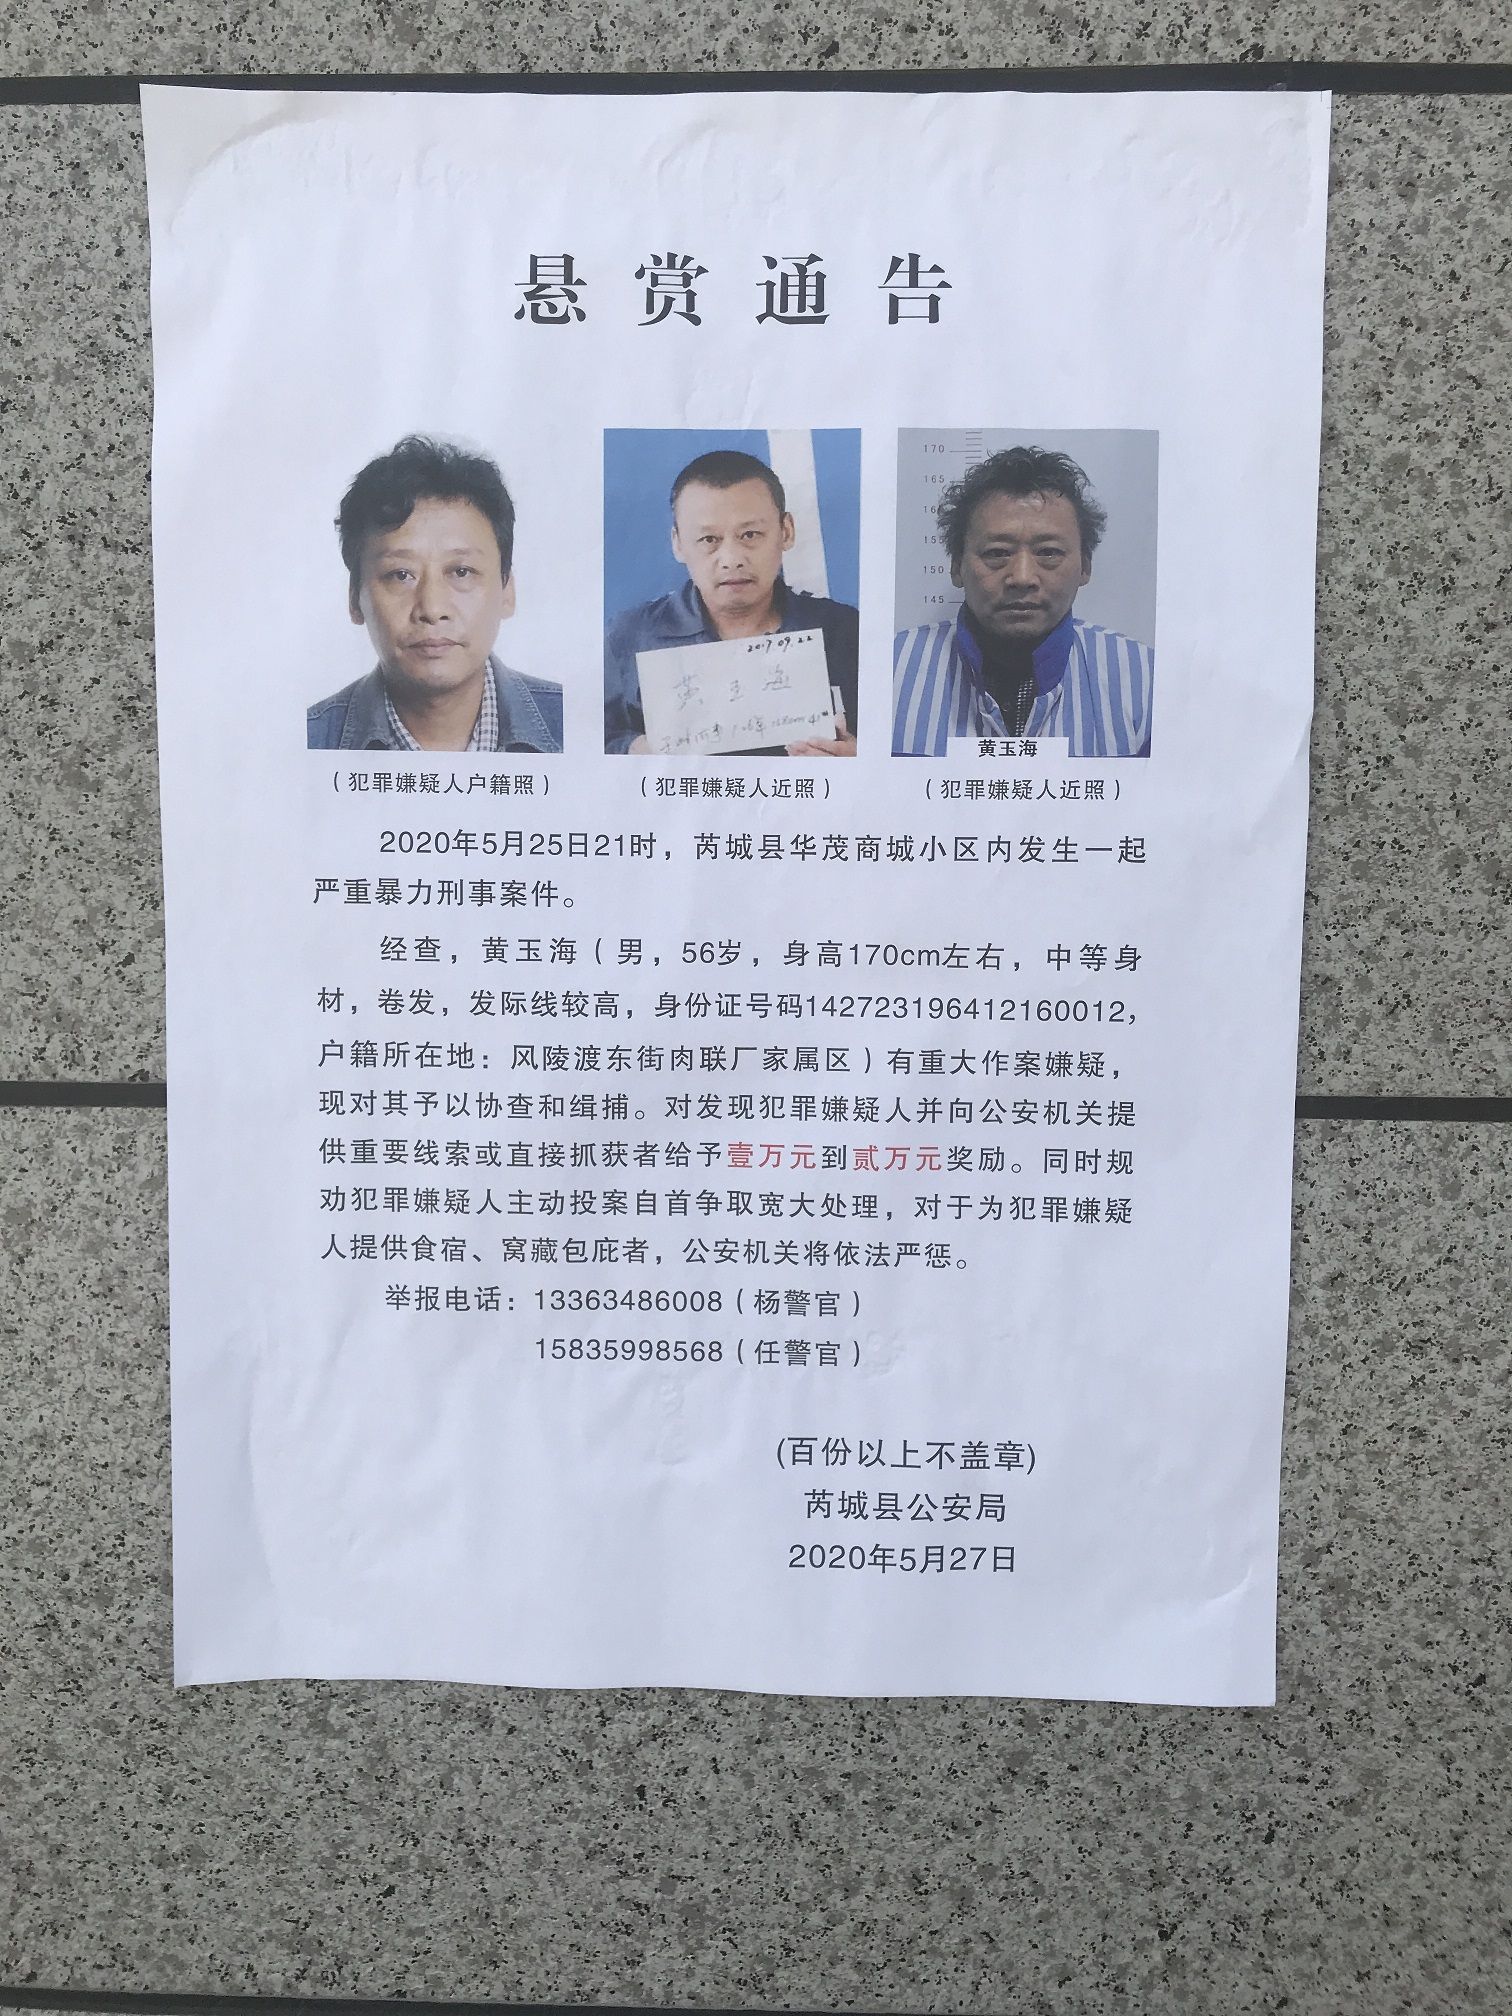 悬赏通告
170
165
160
155
150
145
2017.09.22
黄玉海
黄玉海
(犯罪嫌疑人户籍照)
(犯罪嫌疑人近照)
(犯罪嫌疑人近照)
2020年5月25日21时，芮城县华茂商城小区内发生一起
严重暴力刑事案件。
经查，黄玉海（男，56岁，身高170cm左右，中等身
材，卷发，发际线较高，身份证号码142723196412160012，
户籍所在地：风陵渡东街肉联厂家属区）有重大作案嫌疑，
现对其予以协查和缉捕。对发现犯罪嫌疑人并向公安机关提
供重要线索或直接抓获者给予壹万元到贰万元奖励。同时规
劝犯罪嫌疑人主动投案自首争取宽大处理，对于为犯罪嫌疑
人提供食宿、窝藏包庇者，公安机关将依法严惩。
举报电话：13363486008（杨警官）
15835998568（任警官）
(百份以上不盖章)
芮城县公安局
2020年5月27日